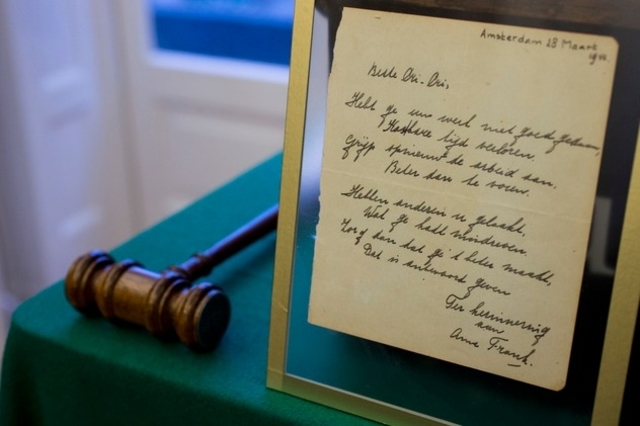 Amsterdam 28 Maart
1942
Beste Cri-Cri,
Hebt ge uw werk niet goed gedaan,
Kostbare tijd verloren.
Grijp opnieuw de arbeid aan.
Beter dan te voren.
Hebben anderen u gelaakt,
Wat ge hadt misdreven.
Zorg dan dat ge 't beter maakt,
Dat is antwoord geven
Ter herinnering
aan
Anne Frank.